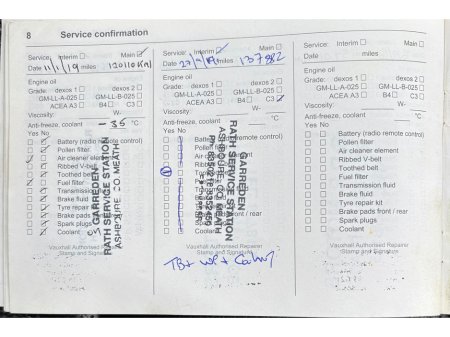 8 Service confirmation
Service: Interim Main
Date 11/1/19 miles 120110km
Engine oil
Grade: dexos 1 dexos 2
GM-LL-A-025 GM-LL-B-025
ACEA A3 B4 C3
Viscosity: W-
Anti-freeze, coolant -36 °C
Yes No
Battery (radio remote control)
Pollen filter
Air cleaner element
Ribbed V-belt
Toothed belt
Fuel filter
Transmission
Brake fluid
Brake pads
Spark plugs
Coolant
GARREDEN
RATH SERVICE STATION
ASHBOURNE CO MEATH
Service: Interim Main
Date miles 137982
Engine oil
Grade: dexos 1 dexos 2
GM-LL-A-025 GM-LL-B-025
ACEA A3 B4 C3
Viscosity: W-
Anti-freeze, coolant °C
Yes No
(radio remote control)
Pollen
Air
Ribbed
Brake
Brake front / rear
Spark
GARREDEN
RATH SERVICE STATION
ASHBOURNE CO MEATH
Vauxhall Authorised Repairer
Stamp and Signature
TB + WP +
Service: Interim Main
Date miles
Engine oil
Grade: dexos 1 dexos 2
GM-LL-A-025 GM-LL-B-025
ACEA A3 B4 C3
Viscosity: W-
Anti-freeze, coolant °C
Yes No
Battery (radio remote control)
Pollen filter
Air cleaner element
Ribbed V-belt
Toothed belt
Fuel filter
Transmission fluid
Brake fluid
Tyre repair kit
Brake pads front / rear
Spark plugs
Coolant
Vauxhall Authorised Repairer
Stamp and Signature